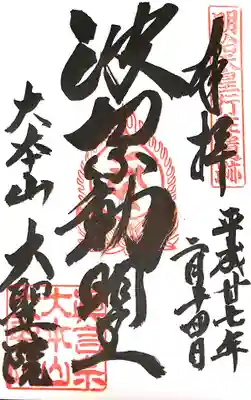 奉拝
明治天皇行在所跡
平成廿七年
二月十四日
波切不動明王
大本山 大聖院
真言宗
大本山